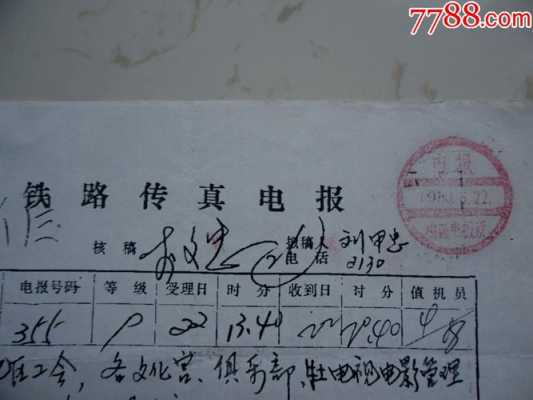 7788.com
电报
铁路传真电报
核稿 拟稿人 刘甲忠
电话 2130
电报号码 等级 受理日 时分 收到日 时分 值机员
355 P 22 13.40 22 20.40
工会，各文化宫、俱乐部、牡电视电影管理